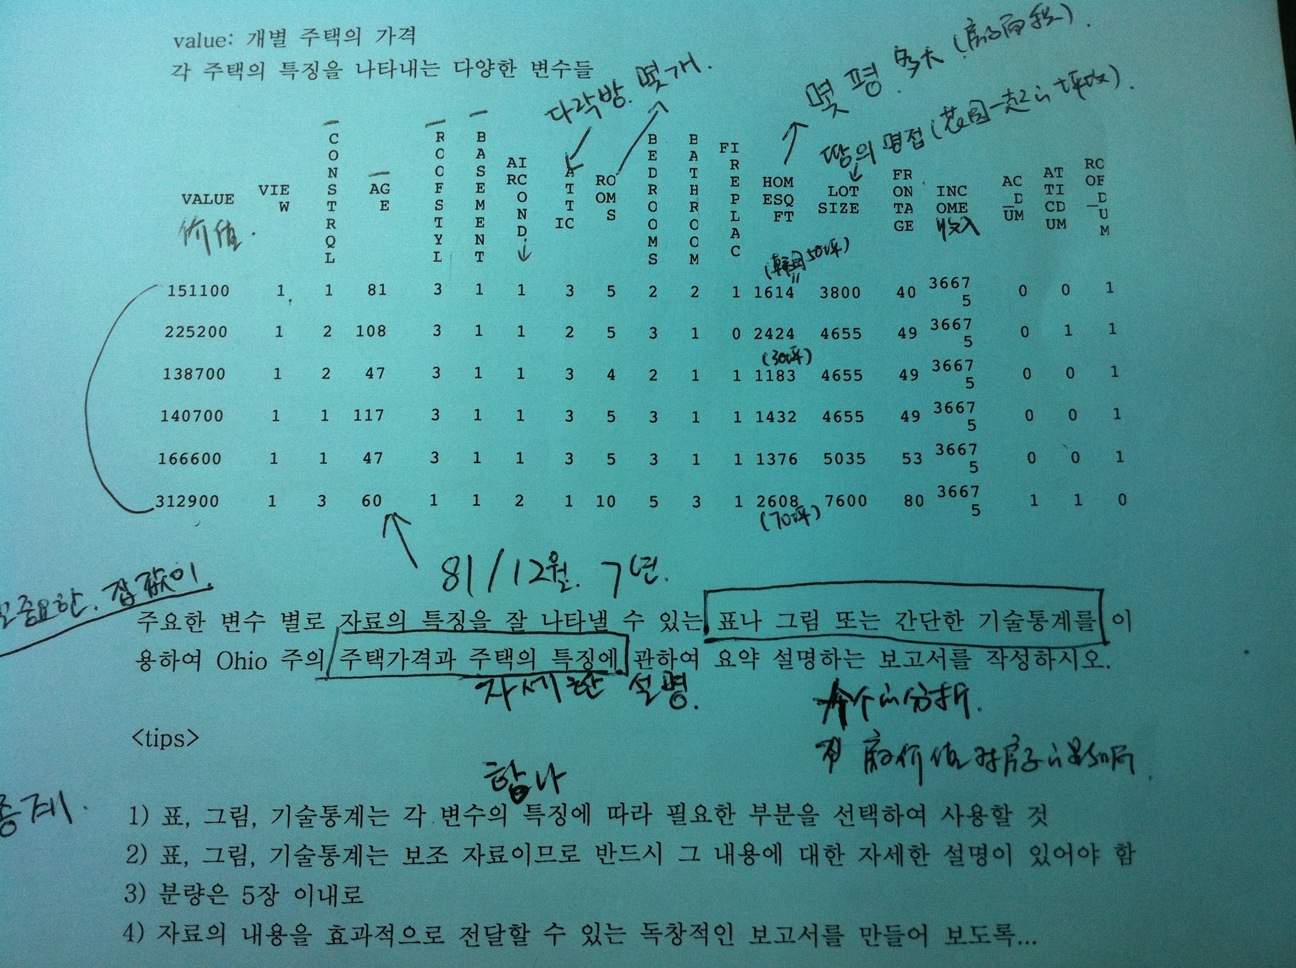 value: 개별 주택의 가격
각 주택의 특징을 나타내는 다양한 변수들
다락방. 몇개.
몇 평. 多大 (房子面积).
땅의 면접 (花园一起的坪数).
VALUE VIEW CONSTRQL AGE ROOFSTYL BASEMENT AIRCOND ATTIC ROOMS BEDROOMS BATHROOM FIREPLAC HOMESQFT LOTSIZE FRONTAGE INCOME AC_DUM ATTICDUM ROOF_DUM
价值.
收入
(韩国50坪)
151100 1 1 81 3 1 1 3 5 2 2 1 1614 3800 40 36675 0 0 1
225200 1 2 108 3 1 1 2 5 3 1 0 2424 4655 49 36675 0 1 1
(30坪)
138700 1 2 47 3 1 1 3 4 2 1 1 1183 4655 49 36675 0 0 1
140700 1 1 117 3 1 1 3 5 3 1 1 1432 4655 49 36675 0 0 1
166600 1 1 47 3 1 1 3 5 3 1 1 1376 5035 53 36675 0 0 1
312900 1 3 60 1 1 2 1 10 5 3 1 2608 7600 80 36675 1 1 0
(70坪)
81/12월. 7년.
중요한. 집값이
주요한 변수 별로 자료의 특징을 잘 나타낼 수 있는 표나 그림 또는 간단한 기술통계를 이
용하여 Ohio 주의 주택가격과 주택의 특징에 관하여 요약 설명하는 보고서를 작성하시오.
자세한 설명.
个的分析.
价值 对房子的影响
<tips>
합나
1) 표, 그림, 기술통계는 각 변수의 특징에 따라 필요한 부분을 선택하여 사용할 것
2) 표, 그림, 기술통계는 보조 자료이므로 반드시 그 내용에 대한 자세한 설명이 있어야 함
3) 분량은 5장 이내로
4) 자료의 내용을 효과적으로 전달할 수 있는 독창적인 보고서를 만들어 보도록...